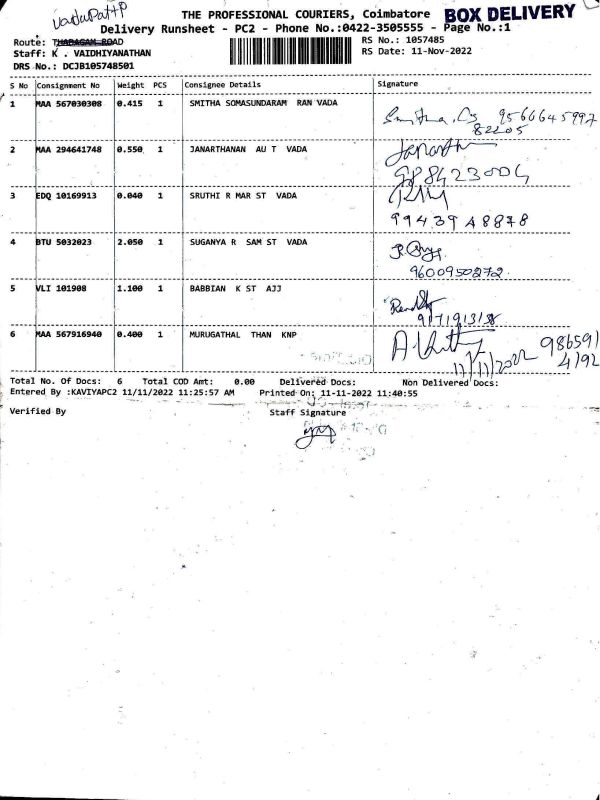 THE PROFESSIONAL COURIERS, Coimbatore BOX DELIVERY
Delivery Runsheet - PC2 - Phone No.:0422-3505555 - Page No.:1
Route: THABAGAM ROAD
RS No.: 1057485
Staff: K . VAIDHIYANATHAN
RS Date: 11-Nov-2022
DRS No.: DCJB105748501
S No Consignment No Weight PCS Consignee Details Signature
1 MAA 567030308 0.415 1 SMITHA SOMASUNDARAM RAN VADA
2 MAA 294641748 0.550 1 JANARTHANAN AU T VADA
3 EDQ 10169913 0.040 1 SRUTHI R MAR ST VADA
4 BTU 5032023 2.050 1 SUGANYA R SAM ST VADA
9600950272.
5 VLI 101908 1.100 1 BABBIAN K ST AJJ
6 MAA 567916940 0.400 1 MURUGATHAL THAN KNP
11/11/2022
Total No. Of Docs: 6 Total COD Amt: 0.00 Delivered Docs: Non Delivered Docs:
Entered By :KAVIYAPC2 11/11/2022 11:25:57 AM Printed On: 11-11-2022 11:40:55
Verified By Staff Signature